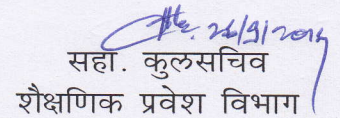 26/9/2014
सहा. कुलसचिव
शैक्षणिक प्रवेश विभाग